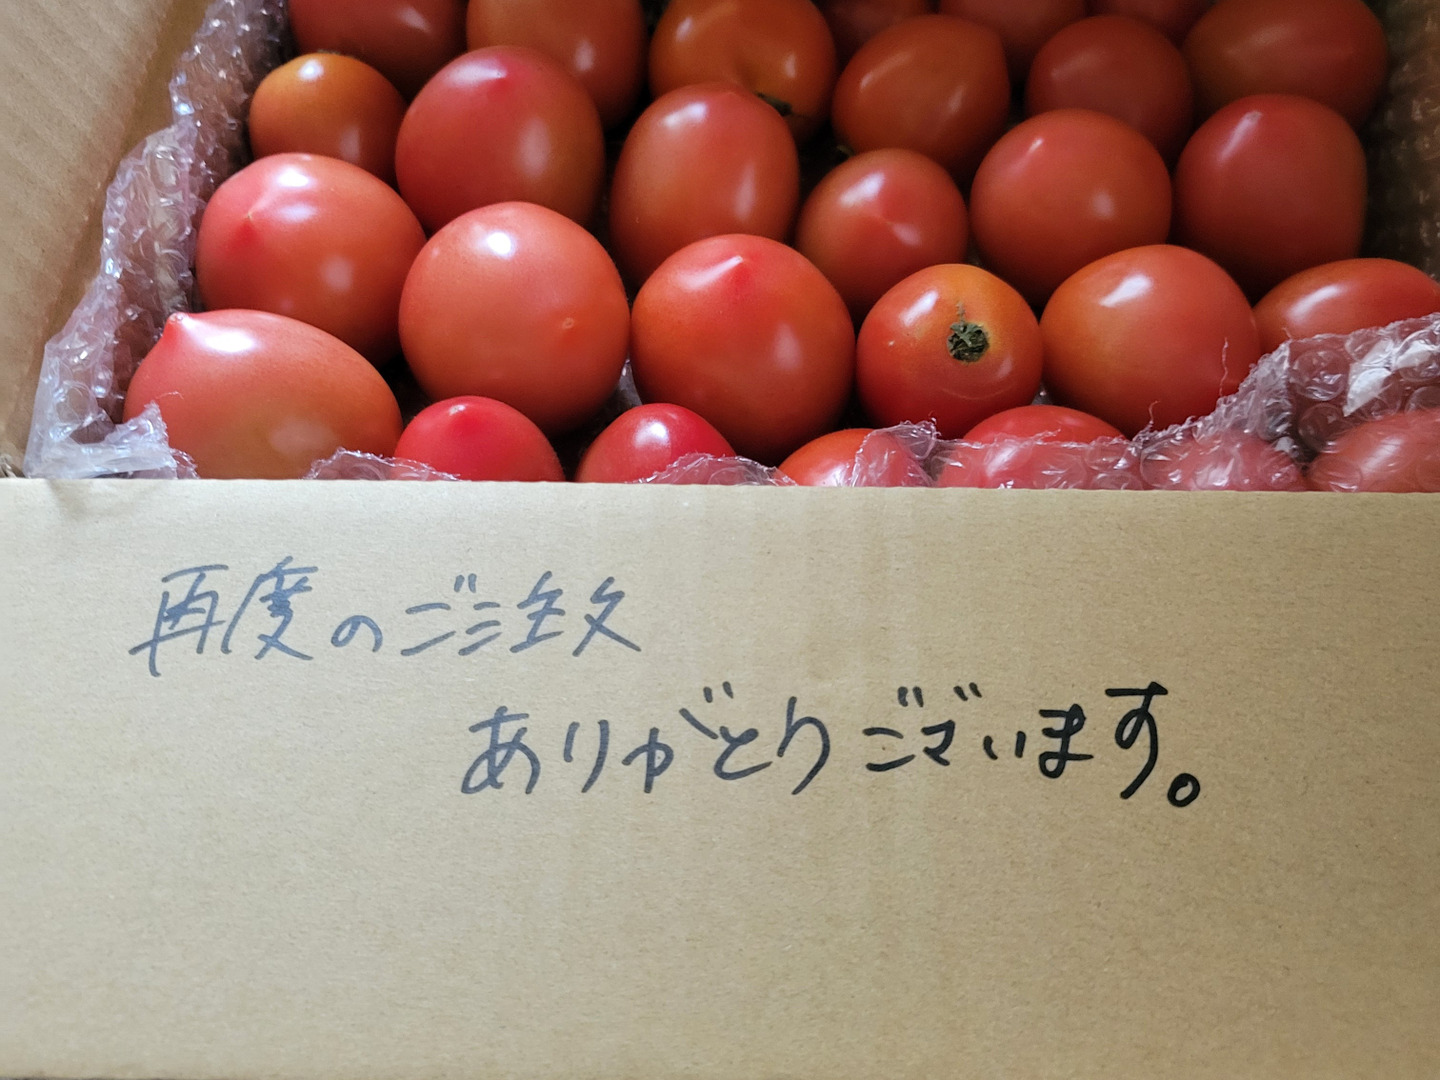 再度のご注文
ありがとりございます。